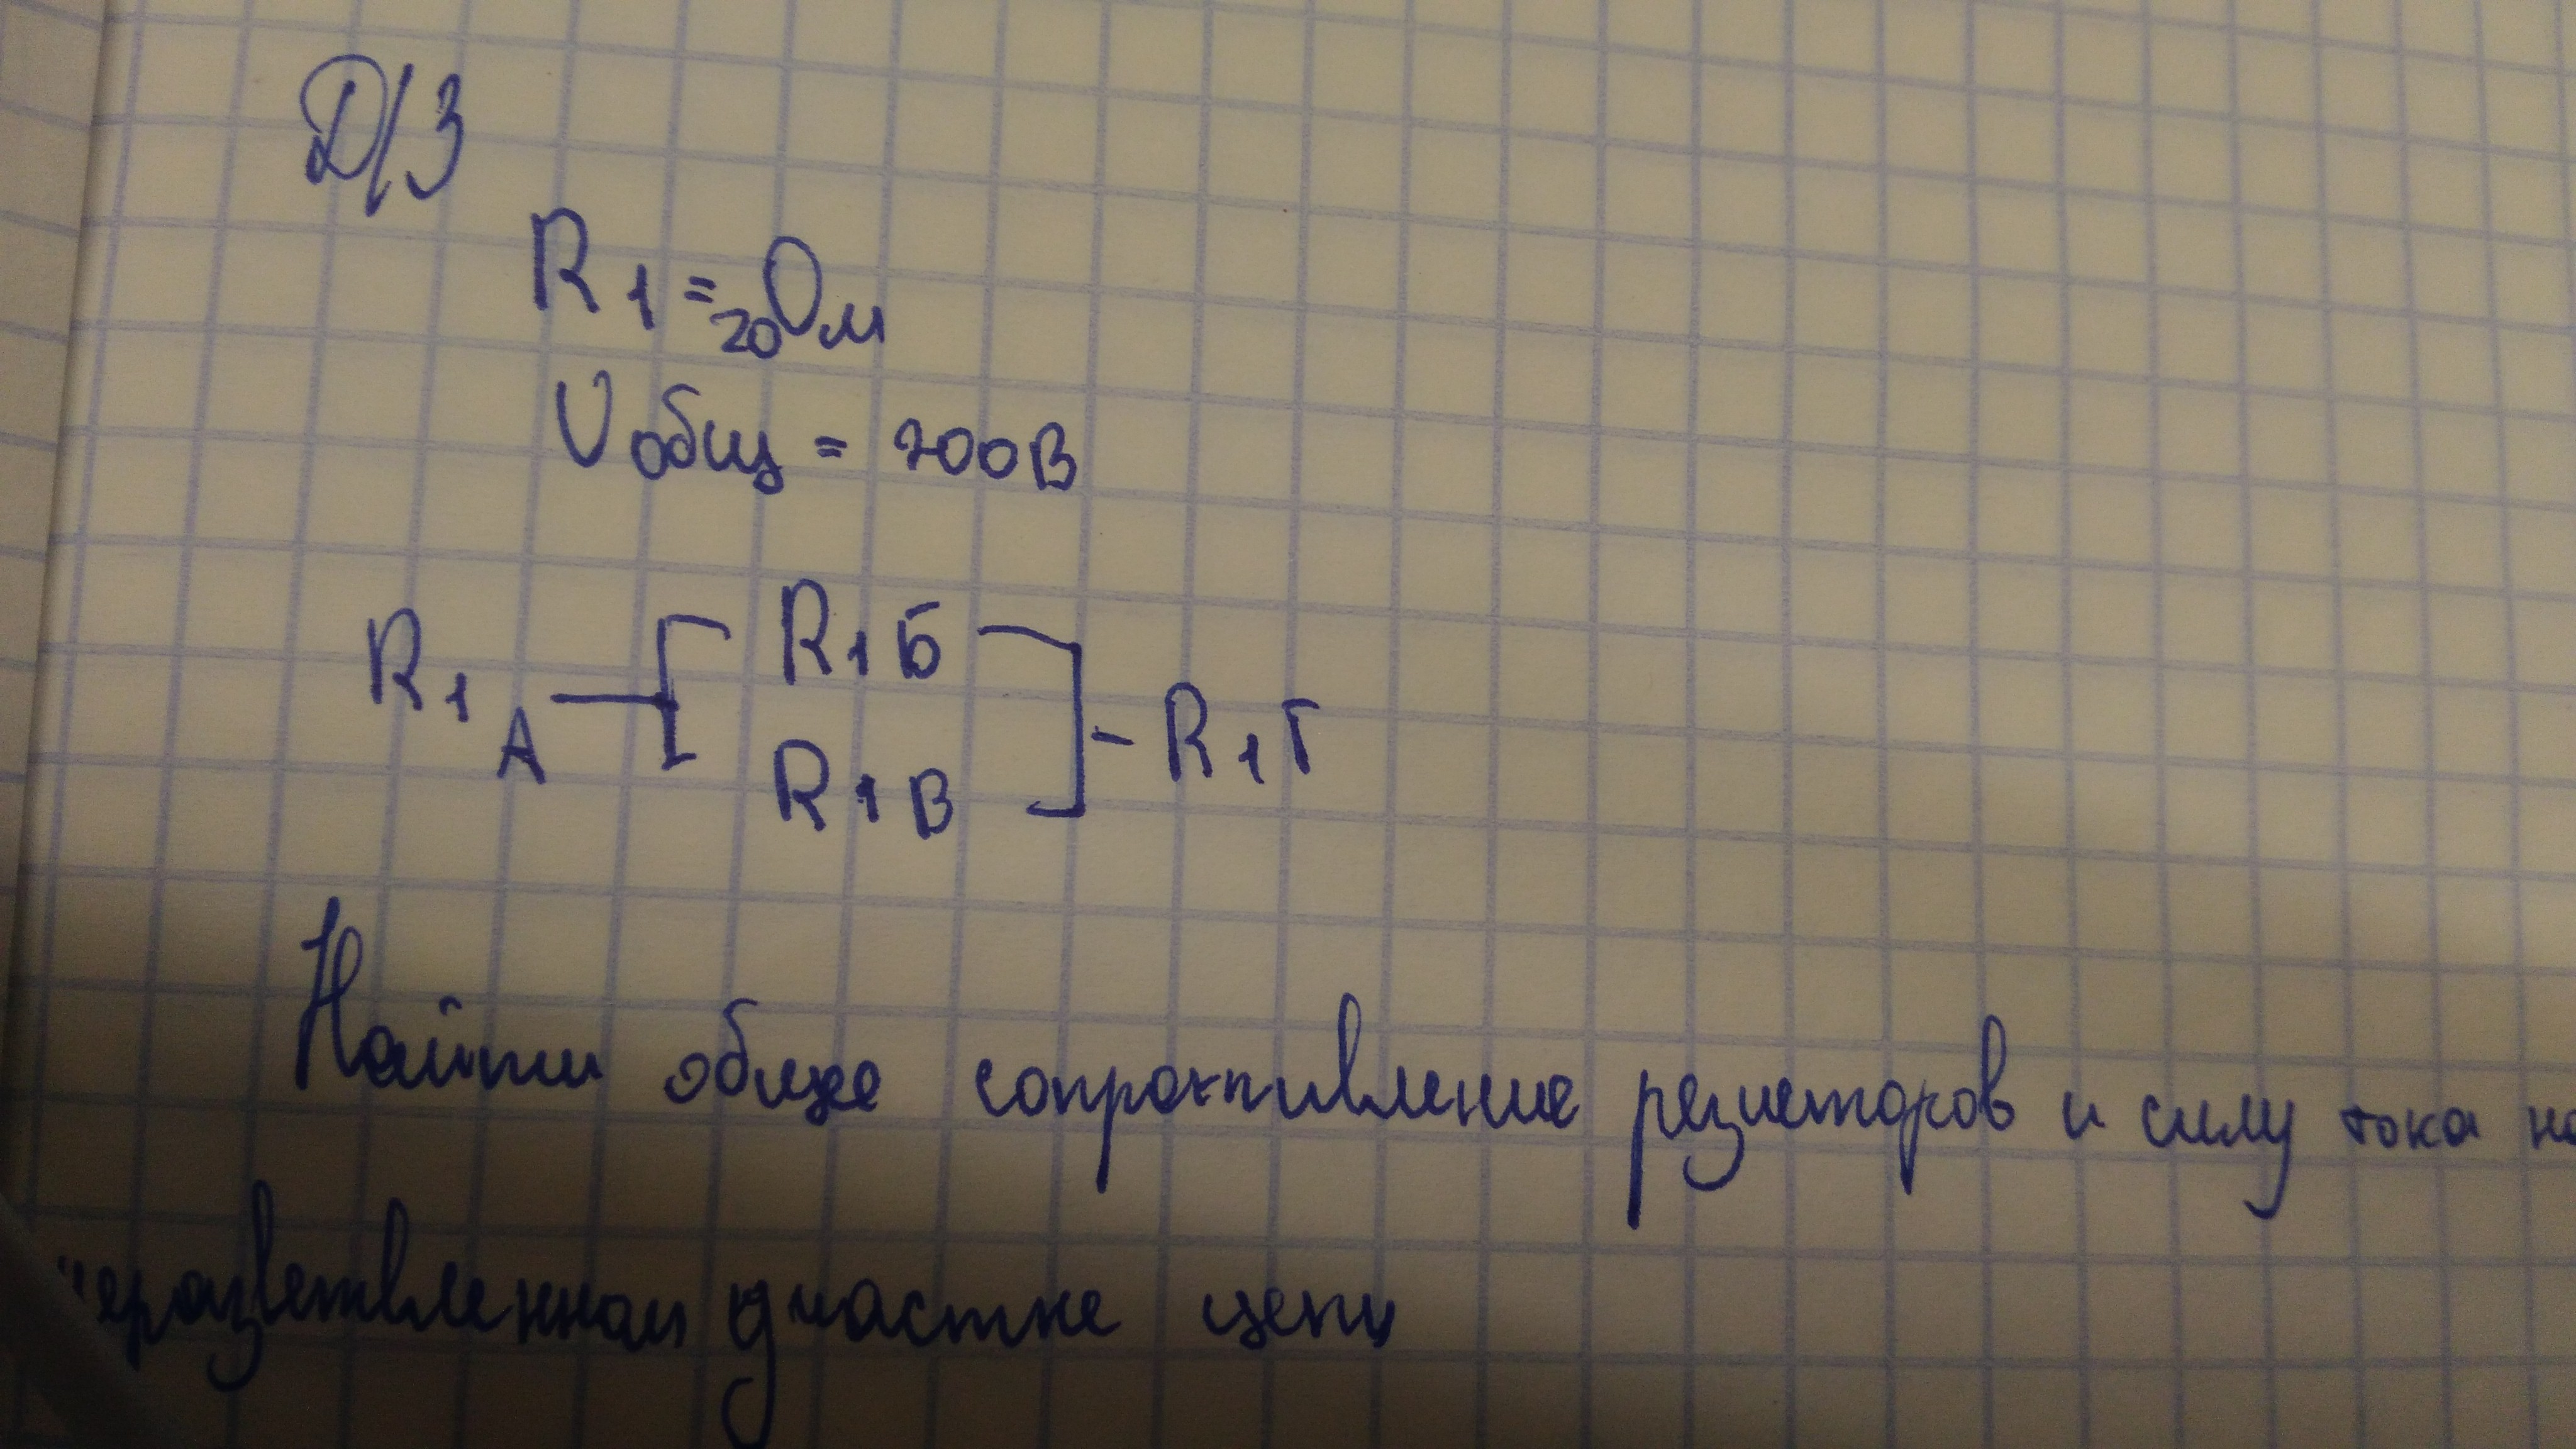 Д/З
R1 = 20 Ом
Uобщ = 200В
R1А R1Б R1В R1Г
Найти общее сопротивление резисторов и силу тока на
неразветвленном участке цепи